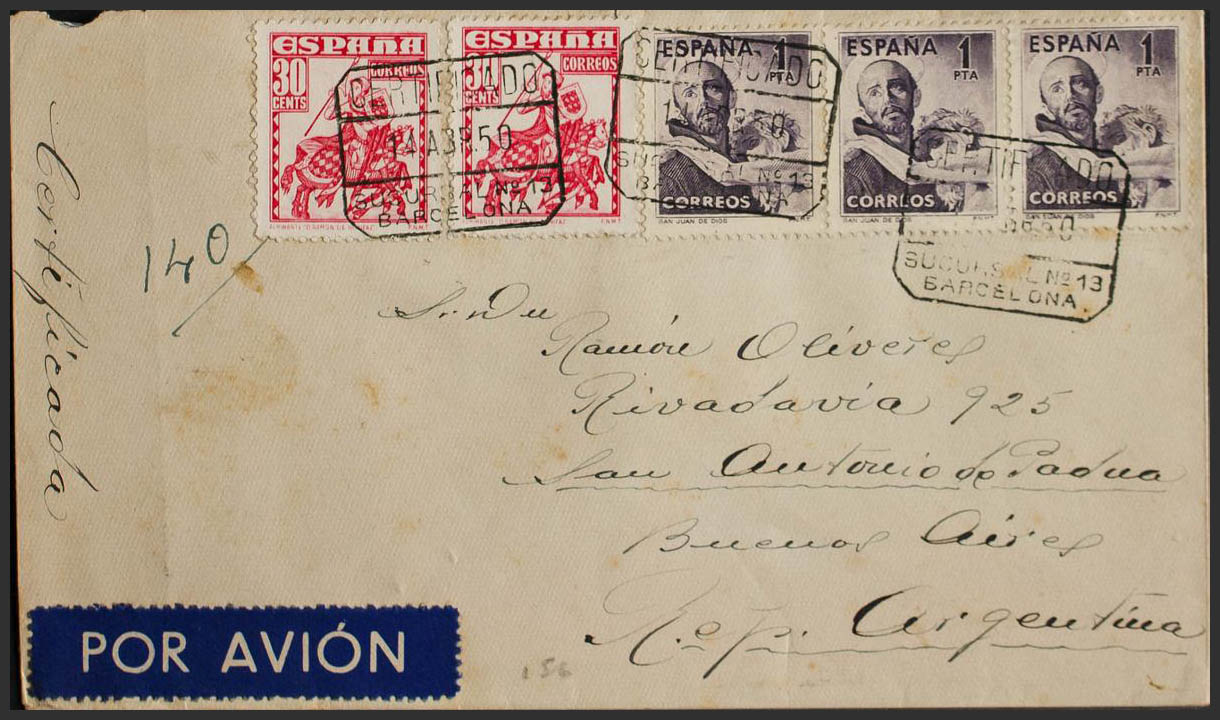 ESPAÑA
30 CENTS
CORREOS
ESPAÑA
30 CENTS
CORREOS
ESPAÑA 1 PTA
CORREOS
ESPAÑA 1 PTA
CORREOS
SAN JUAN DE DIOS F.N.M.T.
ESPAÑA 1 PTA
CORREOS
SAN JUAN DE DIOS F.N.M.T.
CERTIFICADO
14 ABR.50
SUCURSAL Nº 13
BARCELONA
CERTIFICADO
SUCURSAL Nº 13
CERTIFICADO
SUCURSAL Nº 13
BARCELONA
Certificada
140
Sr. Dn
Ramón Oliveres
Rivadavia 925
San Antonio de Padua
Buenos Aires
Rep. Argentina
POR AVIÓN
156